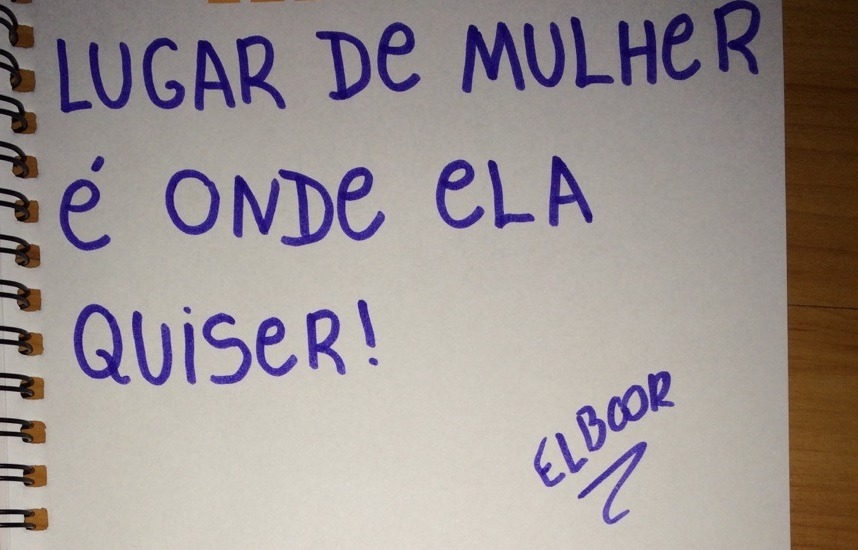 LUGAR De MULHeR
é ONDe eLA
QUiSeR!
ELBOOR